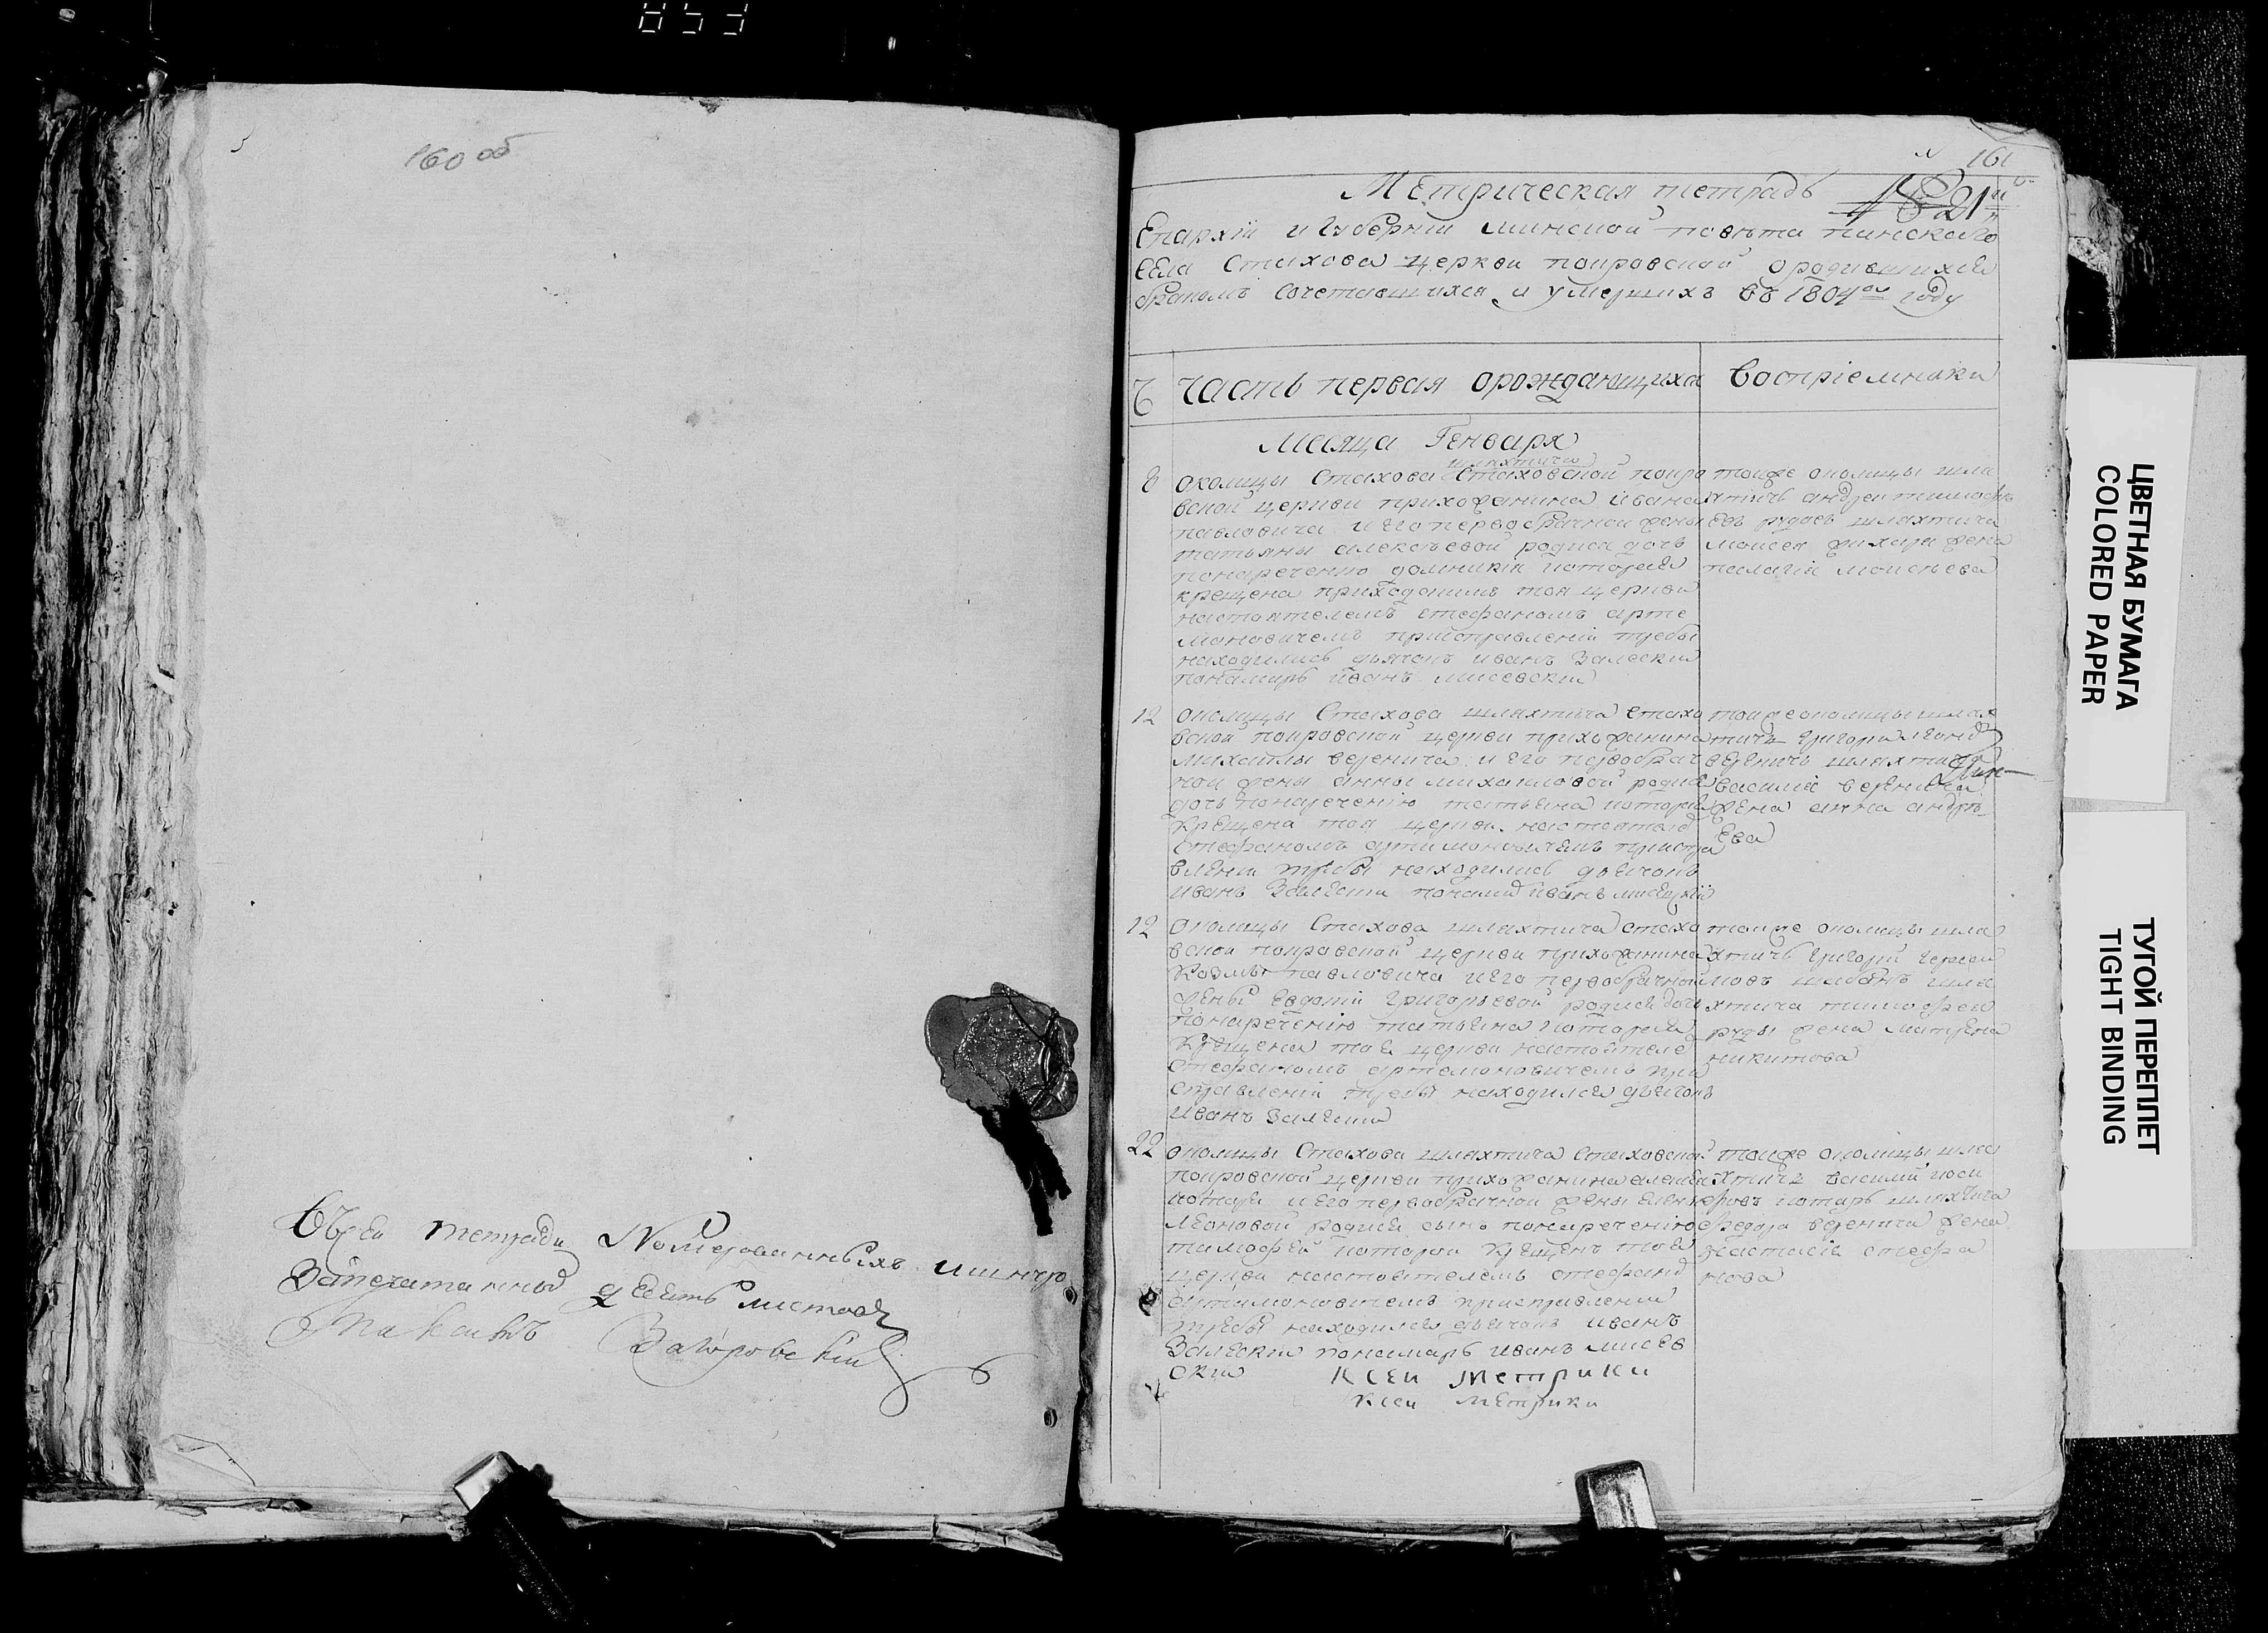 160 об
Въ сей тетради Номерованныхъ и шнуро
Запечатанныхъ девять листовъ
161
Метрическая тетрадь 21
Епархіи и Губерніи минской повѣта пинскаго
села Стахова церкви покровской ородившихся
бракомъ сочетавшихся и умершихъ въ 1804 году
Часть первая орождающихся
Воспріемники
Месяца Генваря
шляхтича
8 околицы Стахова Стаховской покро
вской церкви прихожанина ивана
павловича и его первобрачной жены
татьяны алексѣевой родися дочь
понареченію домникія которая
крещена приходскимъ тоя церкви
настоятелемъ стефаномъ арте
моновичемъ приисправленіи требы
находились дьячокъ иванъ Залеский
понамарь иванъ мисевский
тойже околицы шля
хтичь андрей тимофѣ
евъ рудаев шляхтича
моисея жена
пелагія моисѣева
12 околицы Стахова шляхтича стахо
вской покровской церкви прихожанина
михаилы веренича и его первобрач
ной жены анны михаиловой родися
дочь понареченію татьяна котора
крещена тоя церкви настоятеле
стефаномъ артимоновичемъ приспра
вленіи требы находились дьячокъ
иванъ Залеский понамар иванъ мисевский
тойжеоколицы шлях
тичь григорий
вереничь шляхтича
василія веренича
жена анна андрѣ
ева
12 околицы Стахова шляхтича стахо
вской покровской церкви прихожанина
Козмы павловича и его первобрачной
жены Евдокіи Григорьевой родися дочь
понареченію татьяна которая
крещена тоя церкви настоятеле
стефаномъ артемоновичемъ при
справленіи требы находился дьячокъ
иванъ Залеский
тойже околицы шля
хтичь григорій
мовъ шля
хтича тимофея
руды жена матрена
никитова
22 околицы Стахова шляхтича Стаховской
покровской церкви прихожанина алексѣя
котаря и его первобрачной жены елены
леоновой родися сынъ понареченію
тимофей которой крещенъ тоя
церкви настоятелемъ стефано
артимоновичемъ присправлении
требы находился дьячокъ иванъ
Залеский понамарь иванъ мисев
ский
тойже околицы шля
хтичь василий иоси
фовъ котарь шляхтича
федора веренича жена
настасія стефа
нова
Ксей метрики
Ксей метрики
ЦВЕТНАЯ БУМАГА
COLORED PAPER
ТУГОЙ ПЕРЕПЛЕТ
TIGHT BINDING